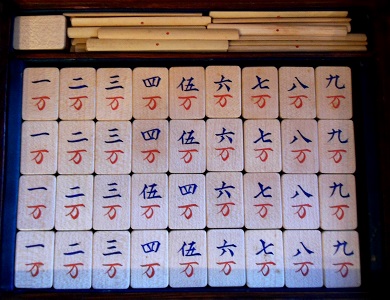 一 二 三 四 伍 六 七 八 九
万 万 万 万 万 万 万 万 万
一 二 三 四 伍 六 七 八 九
万 万 万 万 万 万 万 万 万
一 二 三 伍 四 六 七 八 九
万 万 万 万 万 万 万 万 万
一 二 三 四 伍 六 七 八 九
万 万 万 万 万 万 万 万 万